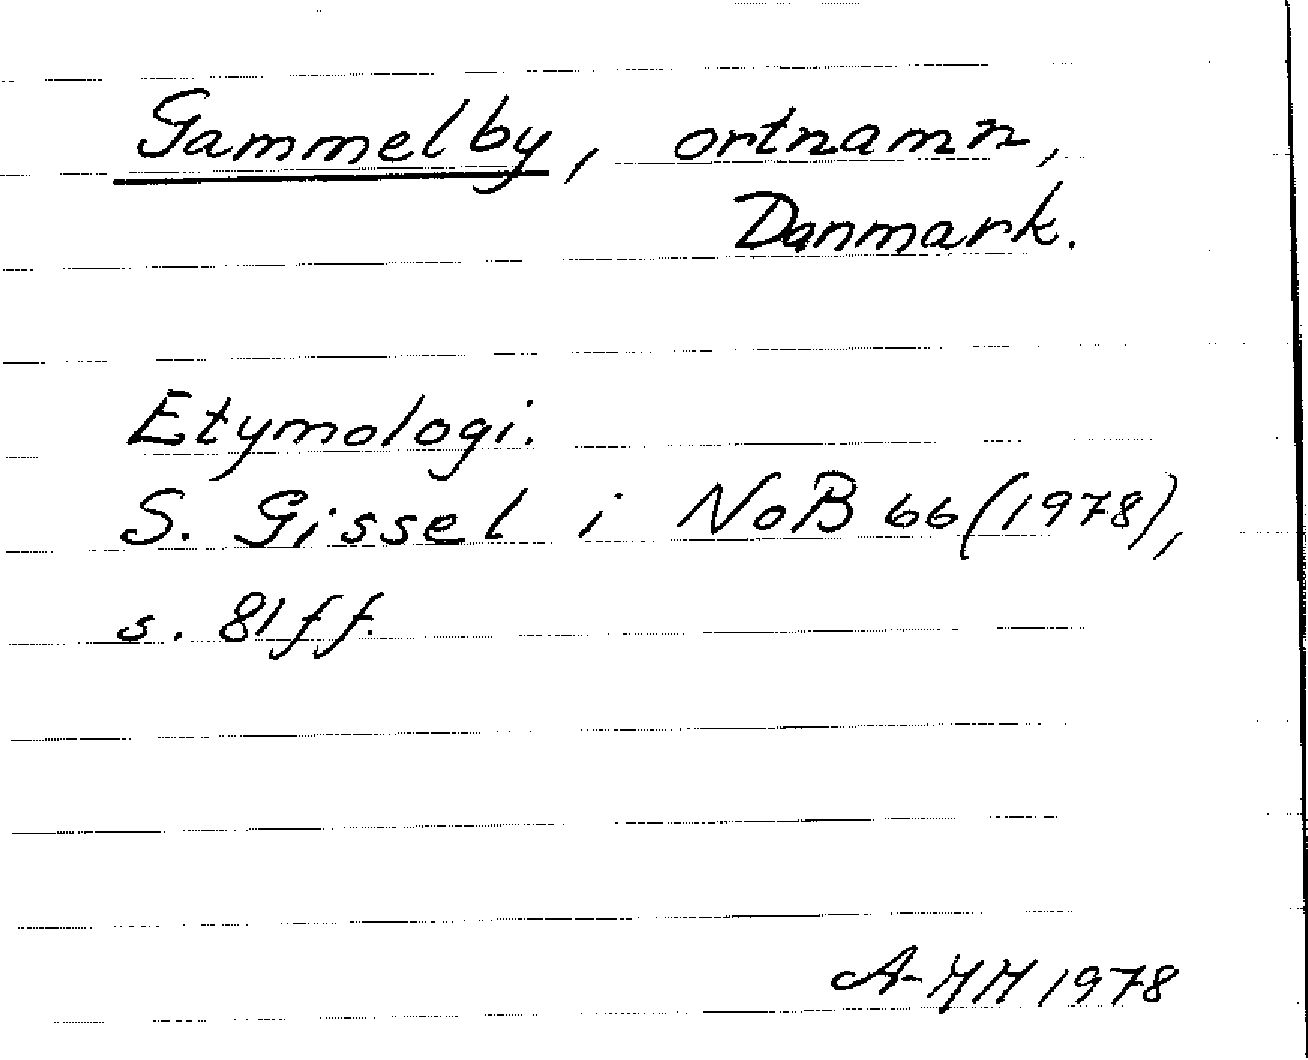 Gammelby, ortnamn,
Danmark.
Etymologi.
S. Gissel i NoB 66 (1978),
s. 81 ff.
1978